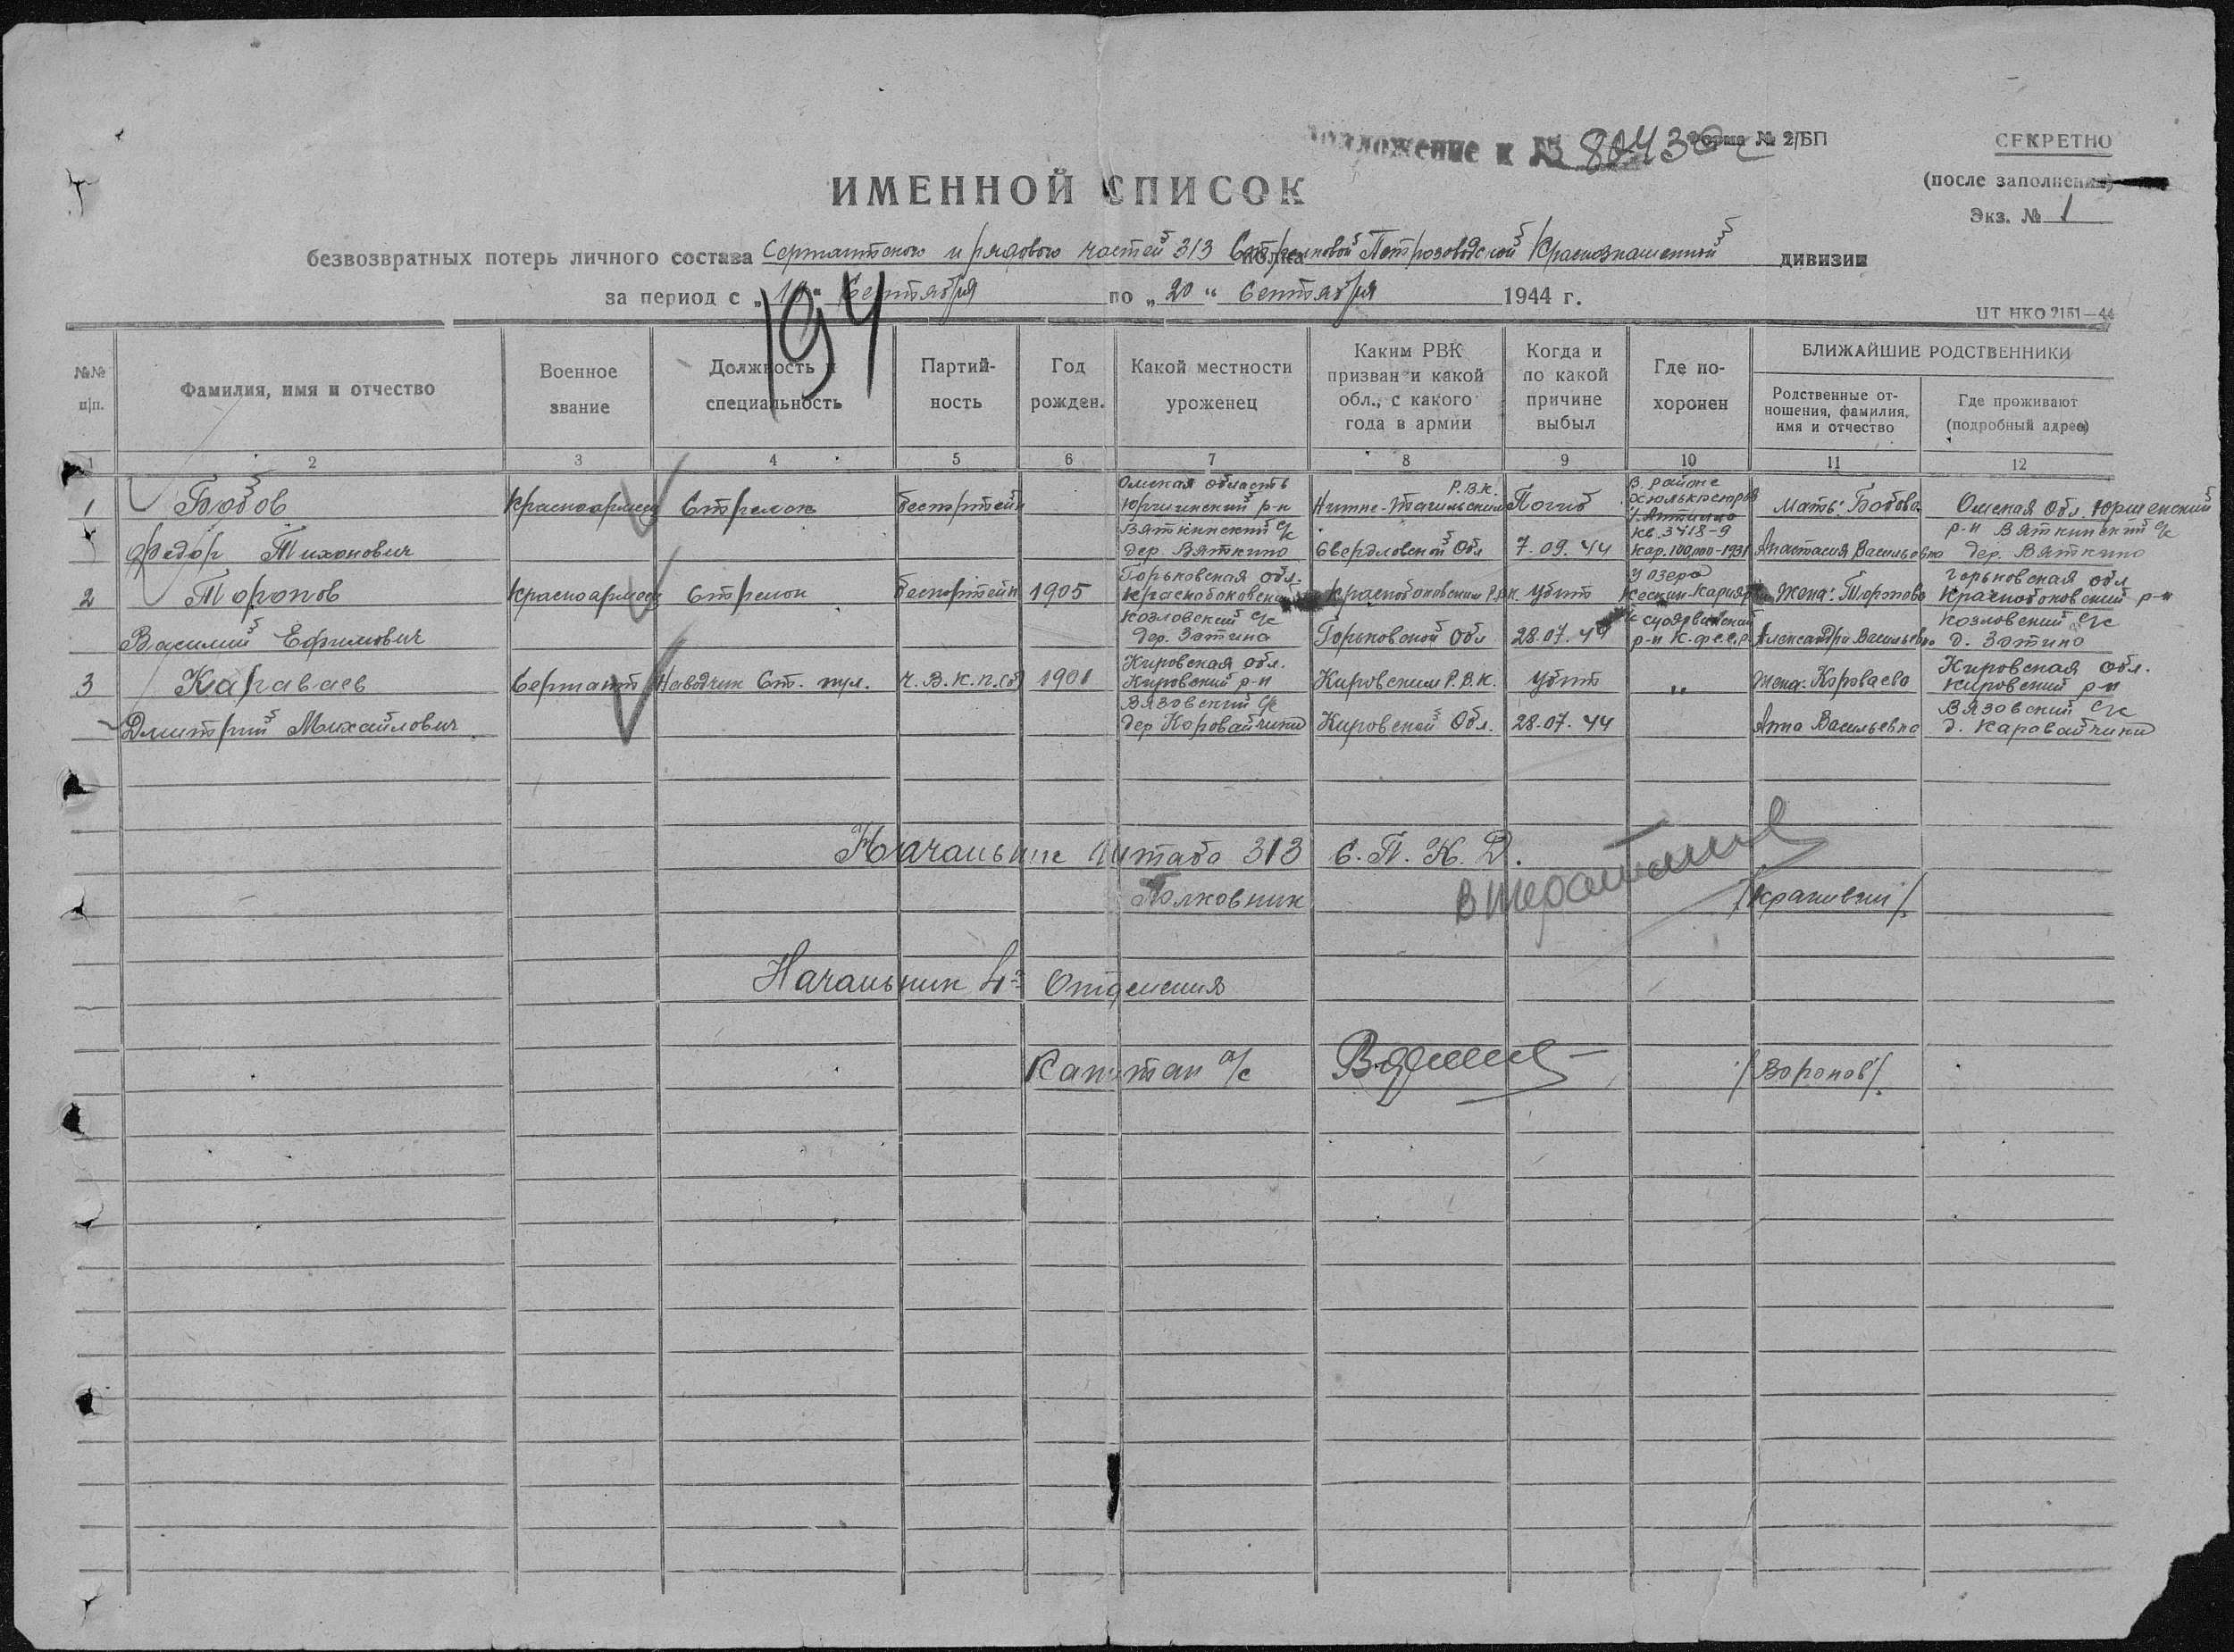 Приложение к № 80430с
Форма № 2/БП
СЕКРЕТНО
(после заполнения)
Экз. № 1
ИМЕННОЙ СПИСОК
безвозвратных потерь личного состава Сержантского и рядового частей 313 Стрелковой Петрозаводской Краснознаменной дивизии
за период с „10“ Сентября по „20“ Сентября 1944 г.
194
ЦТ НКО 2151—44
№№ п/п.
Фамилия, имя и отчество
Военное звание
Должность и специальность
Партий-
ность
Год рожден.
Какой местности уроженец
Каким РВК
призван и какой
обл., с какого
года в армии
Когда и
по какой
причине
выбыл
Где по-
хоронен
БЛИЖАЙШИЕ РОДСТВЕННИКИ
Родственные от-
ношения, фамилия,
имя и отчество
Где проживают
(подробный адрес)
1 2 3 4 5 6 7 8 9 10 11 12
1
Бобов
Федор Тихонович
Красноармеец
Стрелок
беспартейн
Омская область
Юргинский р-н
Вяткинский с/с
дер. Вяткино
Р.В.К.
Нижне-Тагильским
Свердловской Обл
Погиб
7.09.44
В районе
кв. 3418-9
кар. 100,000-1931
Мать: Бобова
Анастасия Васильевна
Омская Обл. Юргенский
р-н Вяткинский с/с
дер. Вяткино
2
Торопов
Василий Ефимович
Красноармеец
Стрелок
беспортейн
1905
Горьковская обл.
Краснобоковский
Козловский с/с
дер. Затино
Краснобоковским Р.В.К.
Горьковской Обл
убит
28.07.44
у озера
Суоярвинский
р-н К-Фсср
Жена: Торопова
Александра Васильевна
Горьковская обл
Краснобоковский р-н
Козловский с/с
д. Затино
3
Караваев
Дмитрий Михайлович
Сержант
Наводчик Ст. пул.
Ч.В.К.П.(б)
1901
Кировская обл.
Кировский р-н
Вязовский с/с
дер Коровайчики
Кировским Р.В.К.
Кировской Обл.
убит
28.07.44
"
Жена. Короваева
Анна Васильевна
Кировская обл.
Кировский р-н
Вязовский с/с
д. Каравайчики
Начальник Штаба 313 С.П.К.Д.
Полковник
Начальник 4го Отделения
Капитан а/с
/Воронов/.